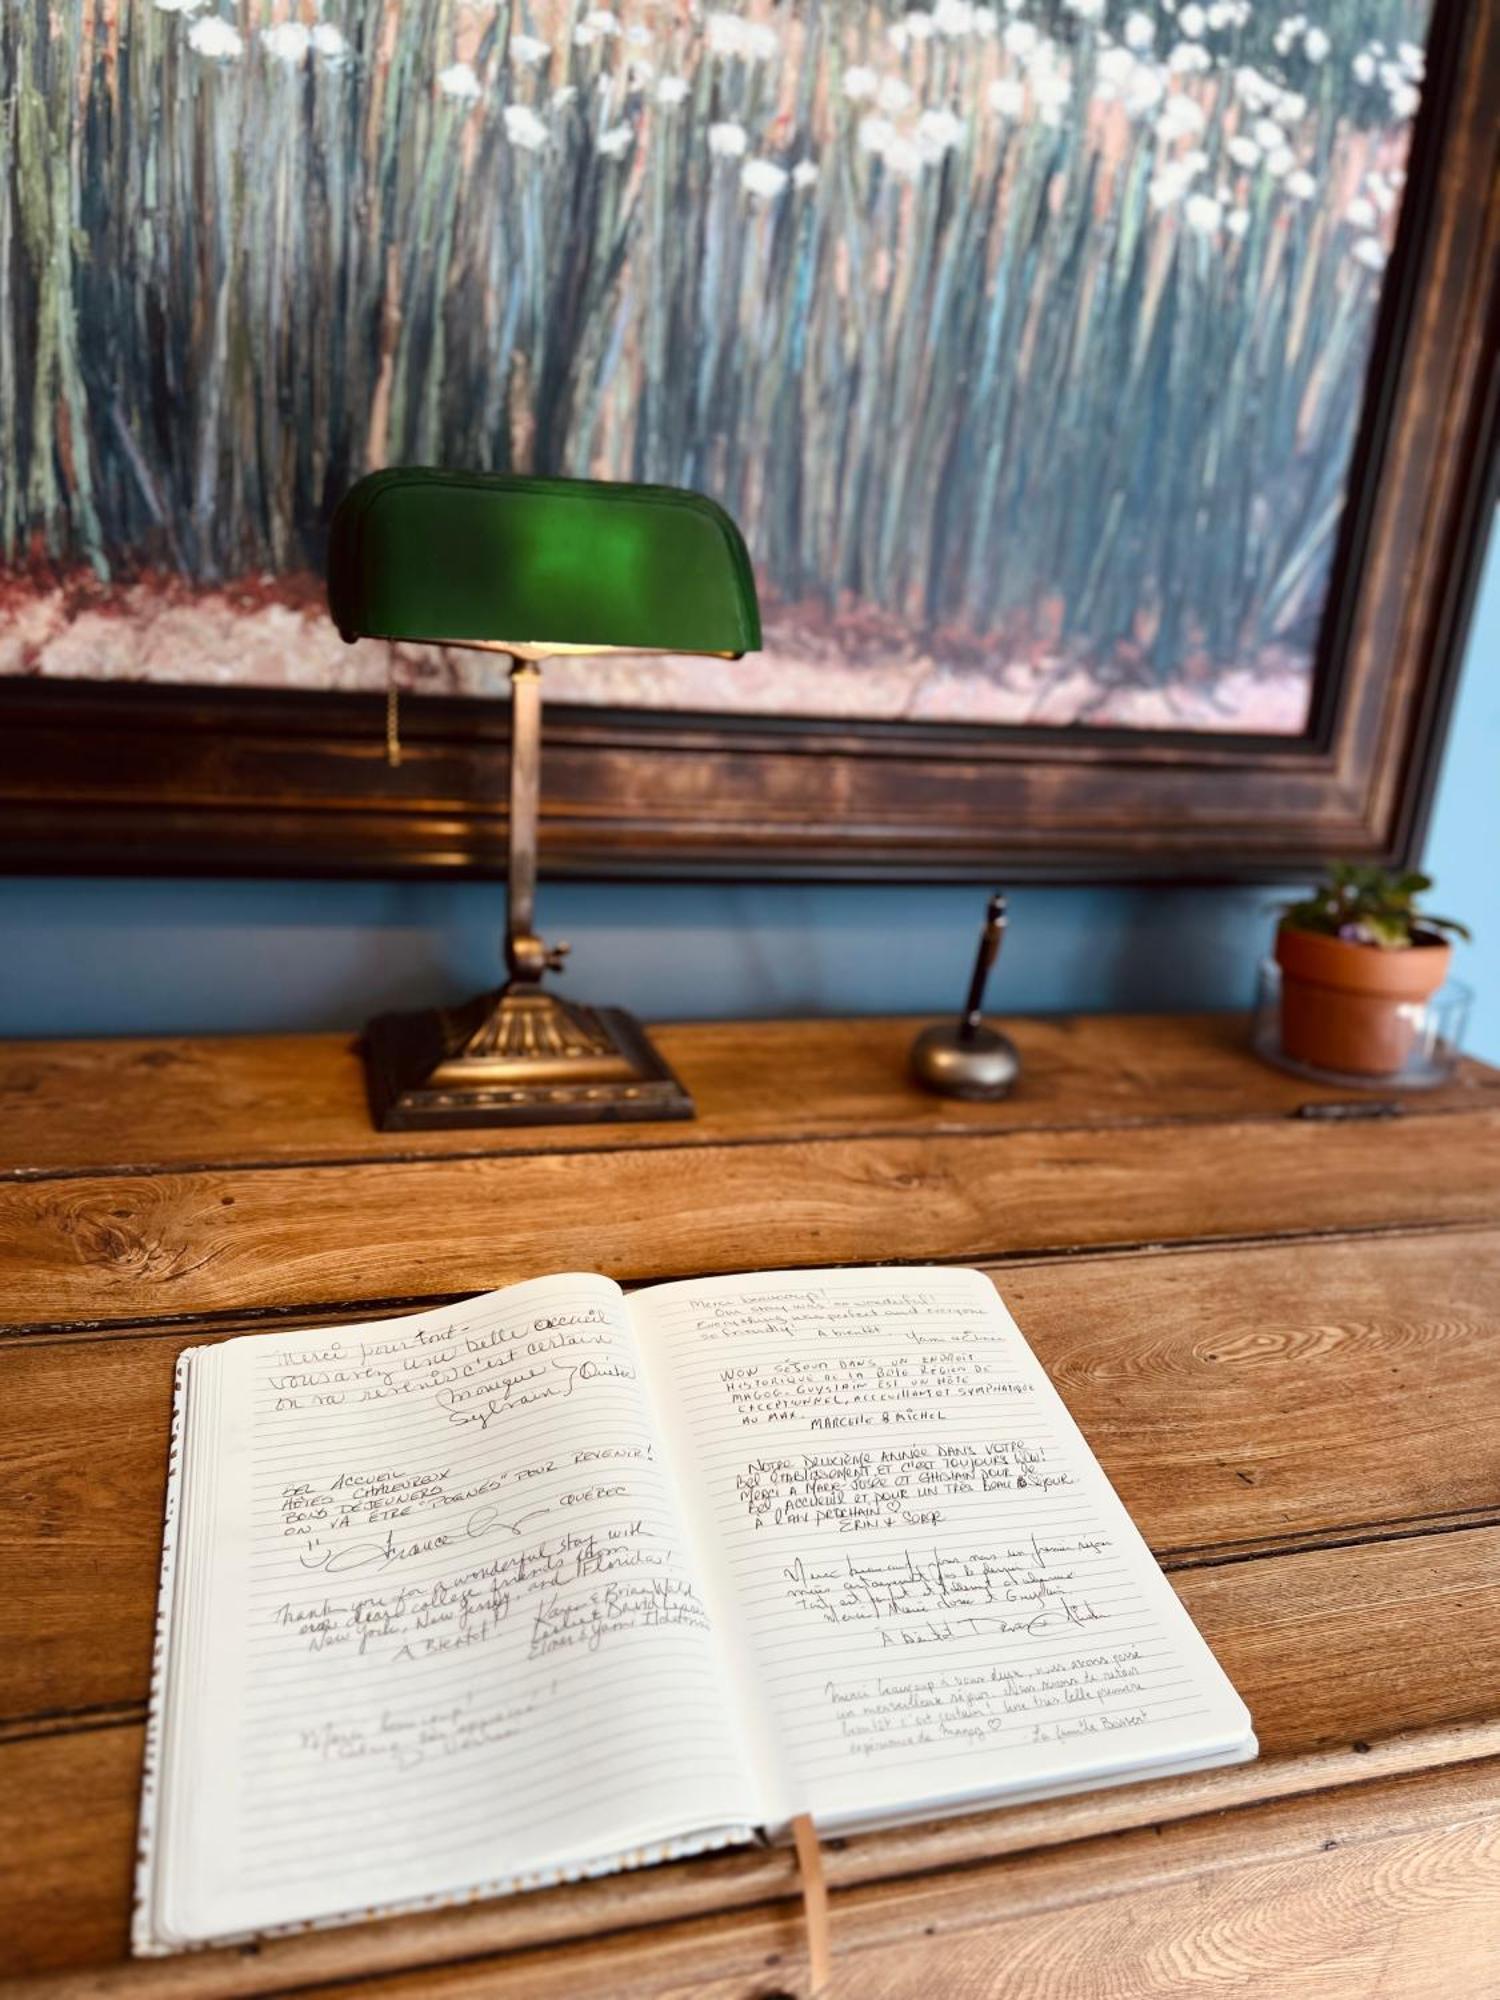 Merci pour tout -
vous avez une belle accueil
on va revenir c'est certain
Monique
Sylvain } Québec
BEL ACCUEIL
HÔTES CHALEUREUX
BONS DÉJEUNERS
ON VA ÊTRE "POGNÉS" POUR REVENIR!
France QUÉBEC
Thank you for a wonderful stay with
our dear college friends from
New York, New Jersey, and Florida!
A Bientot! Karen & Brian Wald
Leslie & David
Elmer & Yami
Merci beaucoup!
Merci beaucoup!
Our stay was so wonderful!
Everything was perfect and everyone
so friendly! A bientôt. Yami & Elmer
WOW SÉJOUR DANS UN ENDROIT
HISTORIQUE DE LA BELLE RÉGION DE
MAGOG. GUYSLAIN EST UN HÔTE
EXCEPTIONNEL, ACCEUILLANT ET SYMPHATIQUE
AU MAX. MARCELLE & MICHEL
NOTRE DEUXIÈME ANNÉE DANS VOTRE
BEL ETABLISSEMENT ET C'EST TOUJOURS WOW!
MERCI A MARIE-JOSÉE ET GHISLAIN POUR LE
BEL ACCUEIL ET POUR UN TRÈS BEAU SÉJOUR
À L'AN PROCHAIN ♡
ERIN & SERGE
Merci beaucoup pour nous un premier séjour
mais certainement pas le dernier
Tout est parfait et
Merci Marie Josée et Guyslain
À bientôt
Merci beaucoup à vous deux, nous avons passé
un merveilleux séjour. Nous serons de retour
bientôt c'est certain! Une très belle première
expérience de Magog ♡ - La famille